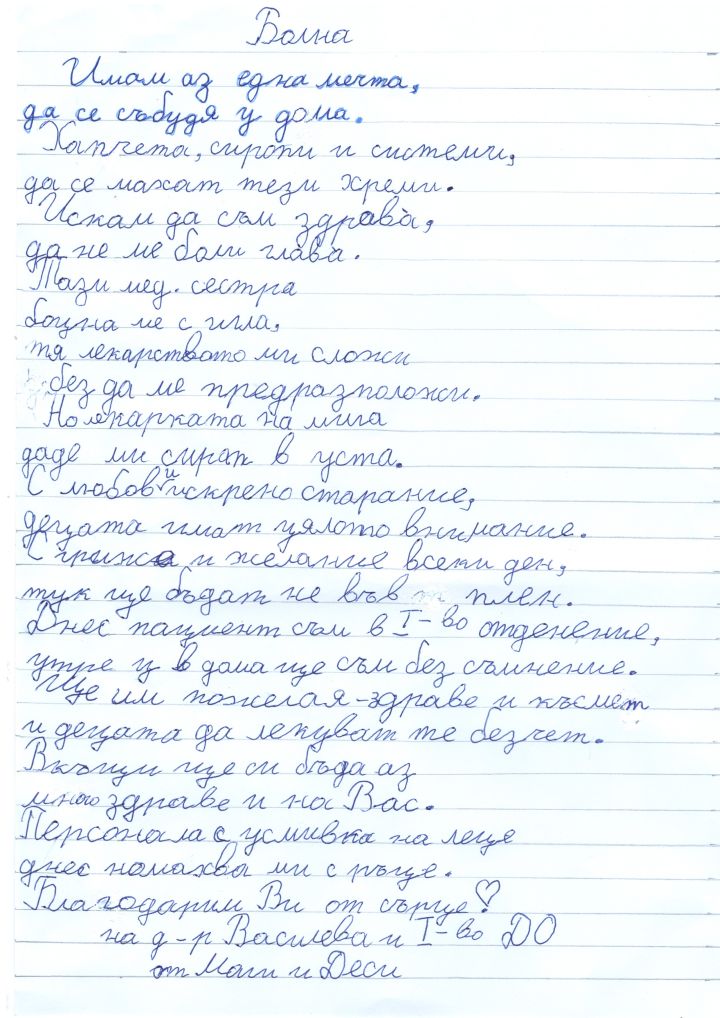 Болна
Имам аз една мечта,
да се събудя у дома.
Хапчета, сиропи и системи,
да се махат тези хреми.
Искам да съм здрава,
да не ме боли глава.
Тази мед. сестра
боцна ме с игла,
тя лекарството ми сложи
без да ме предразположи.
Но лекарката на мига
даде ми сироп в уста.
С любов и искрено старание,
децата имат цялото внимание.
С грижа и желание всеки ден,
тук ще бъдат не във плен.
Днес пациент съм в I-во отделение,
утре у в дома ще съм без съмнение.
Ще им пожелая-здраве и късмет
и децата да лекуват те безчет.
Вкъщи ще си бъда аз
много здраве и на Вас.
Персонала с усмивка на леце
днес намахва ми с ръце.
Благодарим Ви от сърце!♡
на д-р Василева и I-во ДО
от Маги и Деси